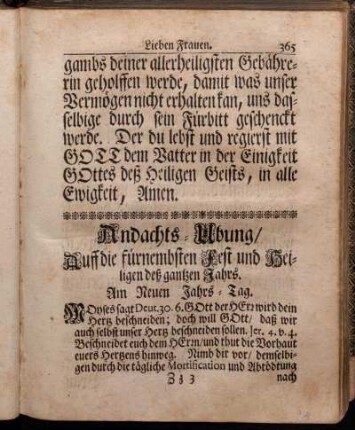 Lieben Frauen. 365
gambs deiner allerheiligsten Gebähre-
rin geholffen werde, damit was unser
Vermögen nicht erhalten kan, uns das-
selbige durch sein Fürbitt geschenckt
werde. Der du lebst und regierst mit
GOTT dem Vatter in der Einigkeit
GOttes deß Heiligen Geists, in alle
Ewigkeit, Amen.
Andachts-Ubung/
Auff die fürnembsten Fest und Hei-
ligen deß gantzen Jahrs.
Am Neuen Jahrs-Tag.
MOyses sagt Deut. 30. 6. GOtt der HErr wird dein
Hertz beschneiden; doch will GOtt/ daß wir
auch selbst unser Hertz beschneiden sollen. Jer. 4. v. 4.
Beschneidet euch dem HErrn/ und thut die Vorhaut
euers Hertzens hinweg. Nimb dir vor/ demselbi-
gen durch die tägliche Mortification und Abtödtung
Zz 3 nach